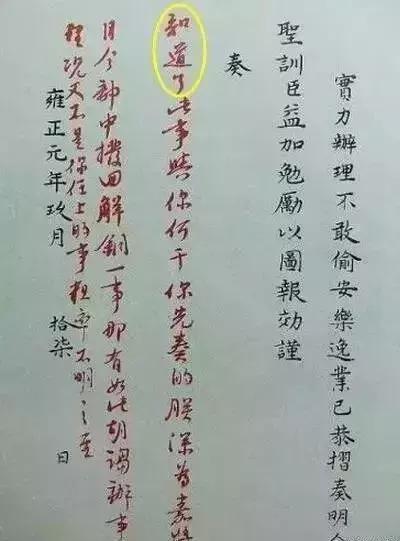 實力辦理不敢偷安樂逸業已恭摺奏明今
聖訓臣益加勉勵以圖報効謹
奏
知道了此事與你何干你先奏的朕深為嘉
目今部中撥回解銅一事那有如此胡謅辦事
況又不是你任上的事粗率不明之至
雍正元年玖月 拾柒 日